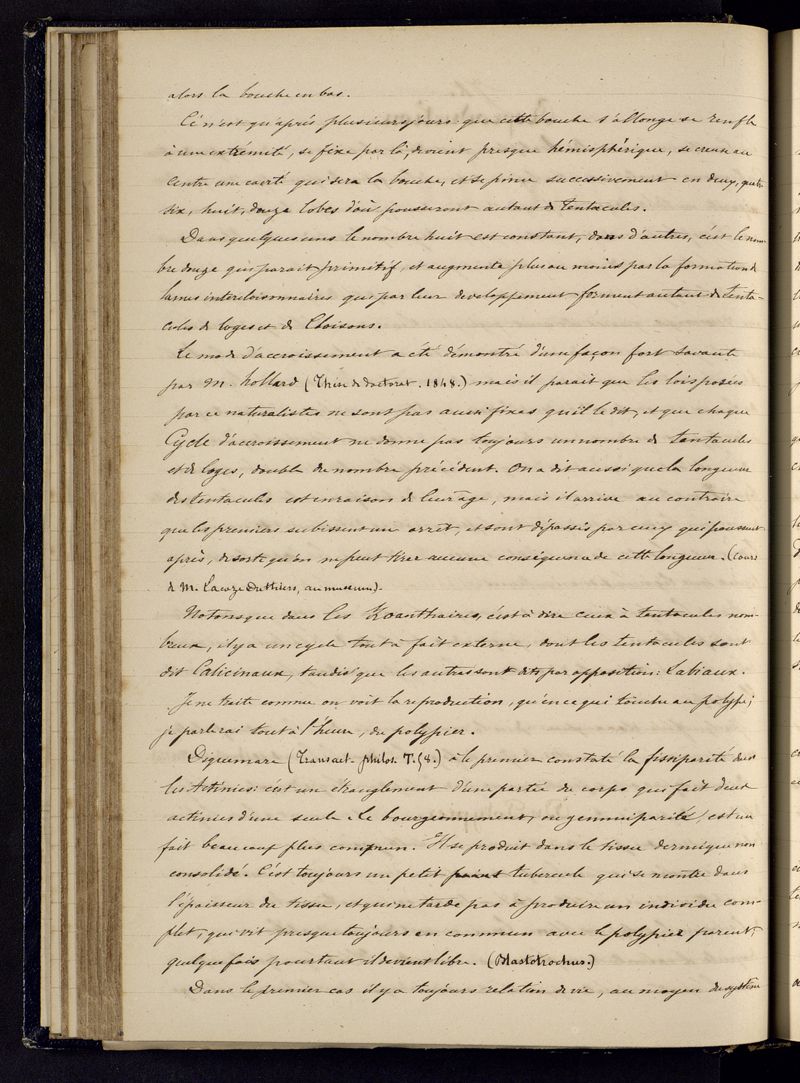 alors la bouche en bas.
Ce n'est qu'après plusieurs jours que cette bouche s'allonge se renfle
à une extrémité, se fixe par là, devient presque hémisphérique, se creuse au
centre une cavité qui sera la bouche, et se divise successivement en deux, quatre
six, huit, douze lobes d'où pousseront autant de tentacules.
Dans quelques uns le nombre huit est constant, dans d'autres, c'est le nom-
bre douze qui parait primitif, et augmente plus ou moins par la formation de
lames intercloisonnaires qui par leur developpement forment autant de tenta-
cules de loges et de Cloisons.
Le mode d'accroissement a été démontré d'une façon fort savante
par M. hollard (Thèse de doctorat. 1848.) mais il parait que les lois posées
par ce naturalistes ne sont pas aussi fixes qu'il le dit, et que chaque
Cycle d'accroissement ne donne pas toujours un nombre de tentacules
et de loges, double du nombre précédent. On a dit aussi que la longueur
des tentacules est en raison de leur âge, mais il arrive au contraire
que les premiers subissent un arrêt, et sont dépassés par ceux qui poussent
après, de sorte qu'on ne peut tirer aucune conséquence de cette longueur. (Cours
de M. Lacaze Duthiers, au museum).
Notons que dans les Zoanthaires, c'est à dire ceux à tentacules nom-
breux, il y a un cycle tout à fait externe, dont les tentacules sont
dit Calicinaux, tandis que les autres sont dits par opposition: Labiaux.
Je ne traite comme on voit la reproduction, qu'en ce qui touche au polype;
je parlerai tout à l'heure, du polypier.
Diquemare (Transact. philos. T. 58.) à le premier constaté la fissiparité dans
les Actinies: c'est un étranglement d'une partie du corps qui fait deux
actinies d'une seule. Le bourgeonnement, ou gemmiparité, est un
fait beaucoup plus commun. Il se produit dans le tissu dermique non
consolidé. C'est toujours un petit tubercule qui se montre dans
l'épaisseur du tissu, et qui ne tarde pas à produire un individu com-
plet, qui vit presque toujours en commun avec le polypier parent,
quelque fois pourtant il devient libre. (Blastotrochus.)
Dans le premier cas il y a toujours relation de vie, au moyen du système